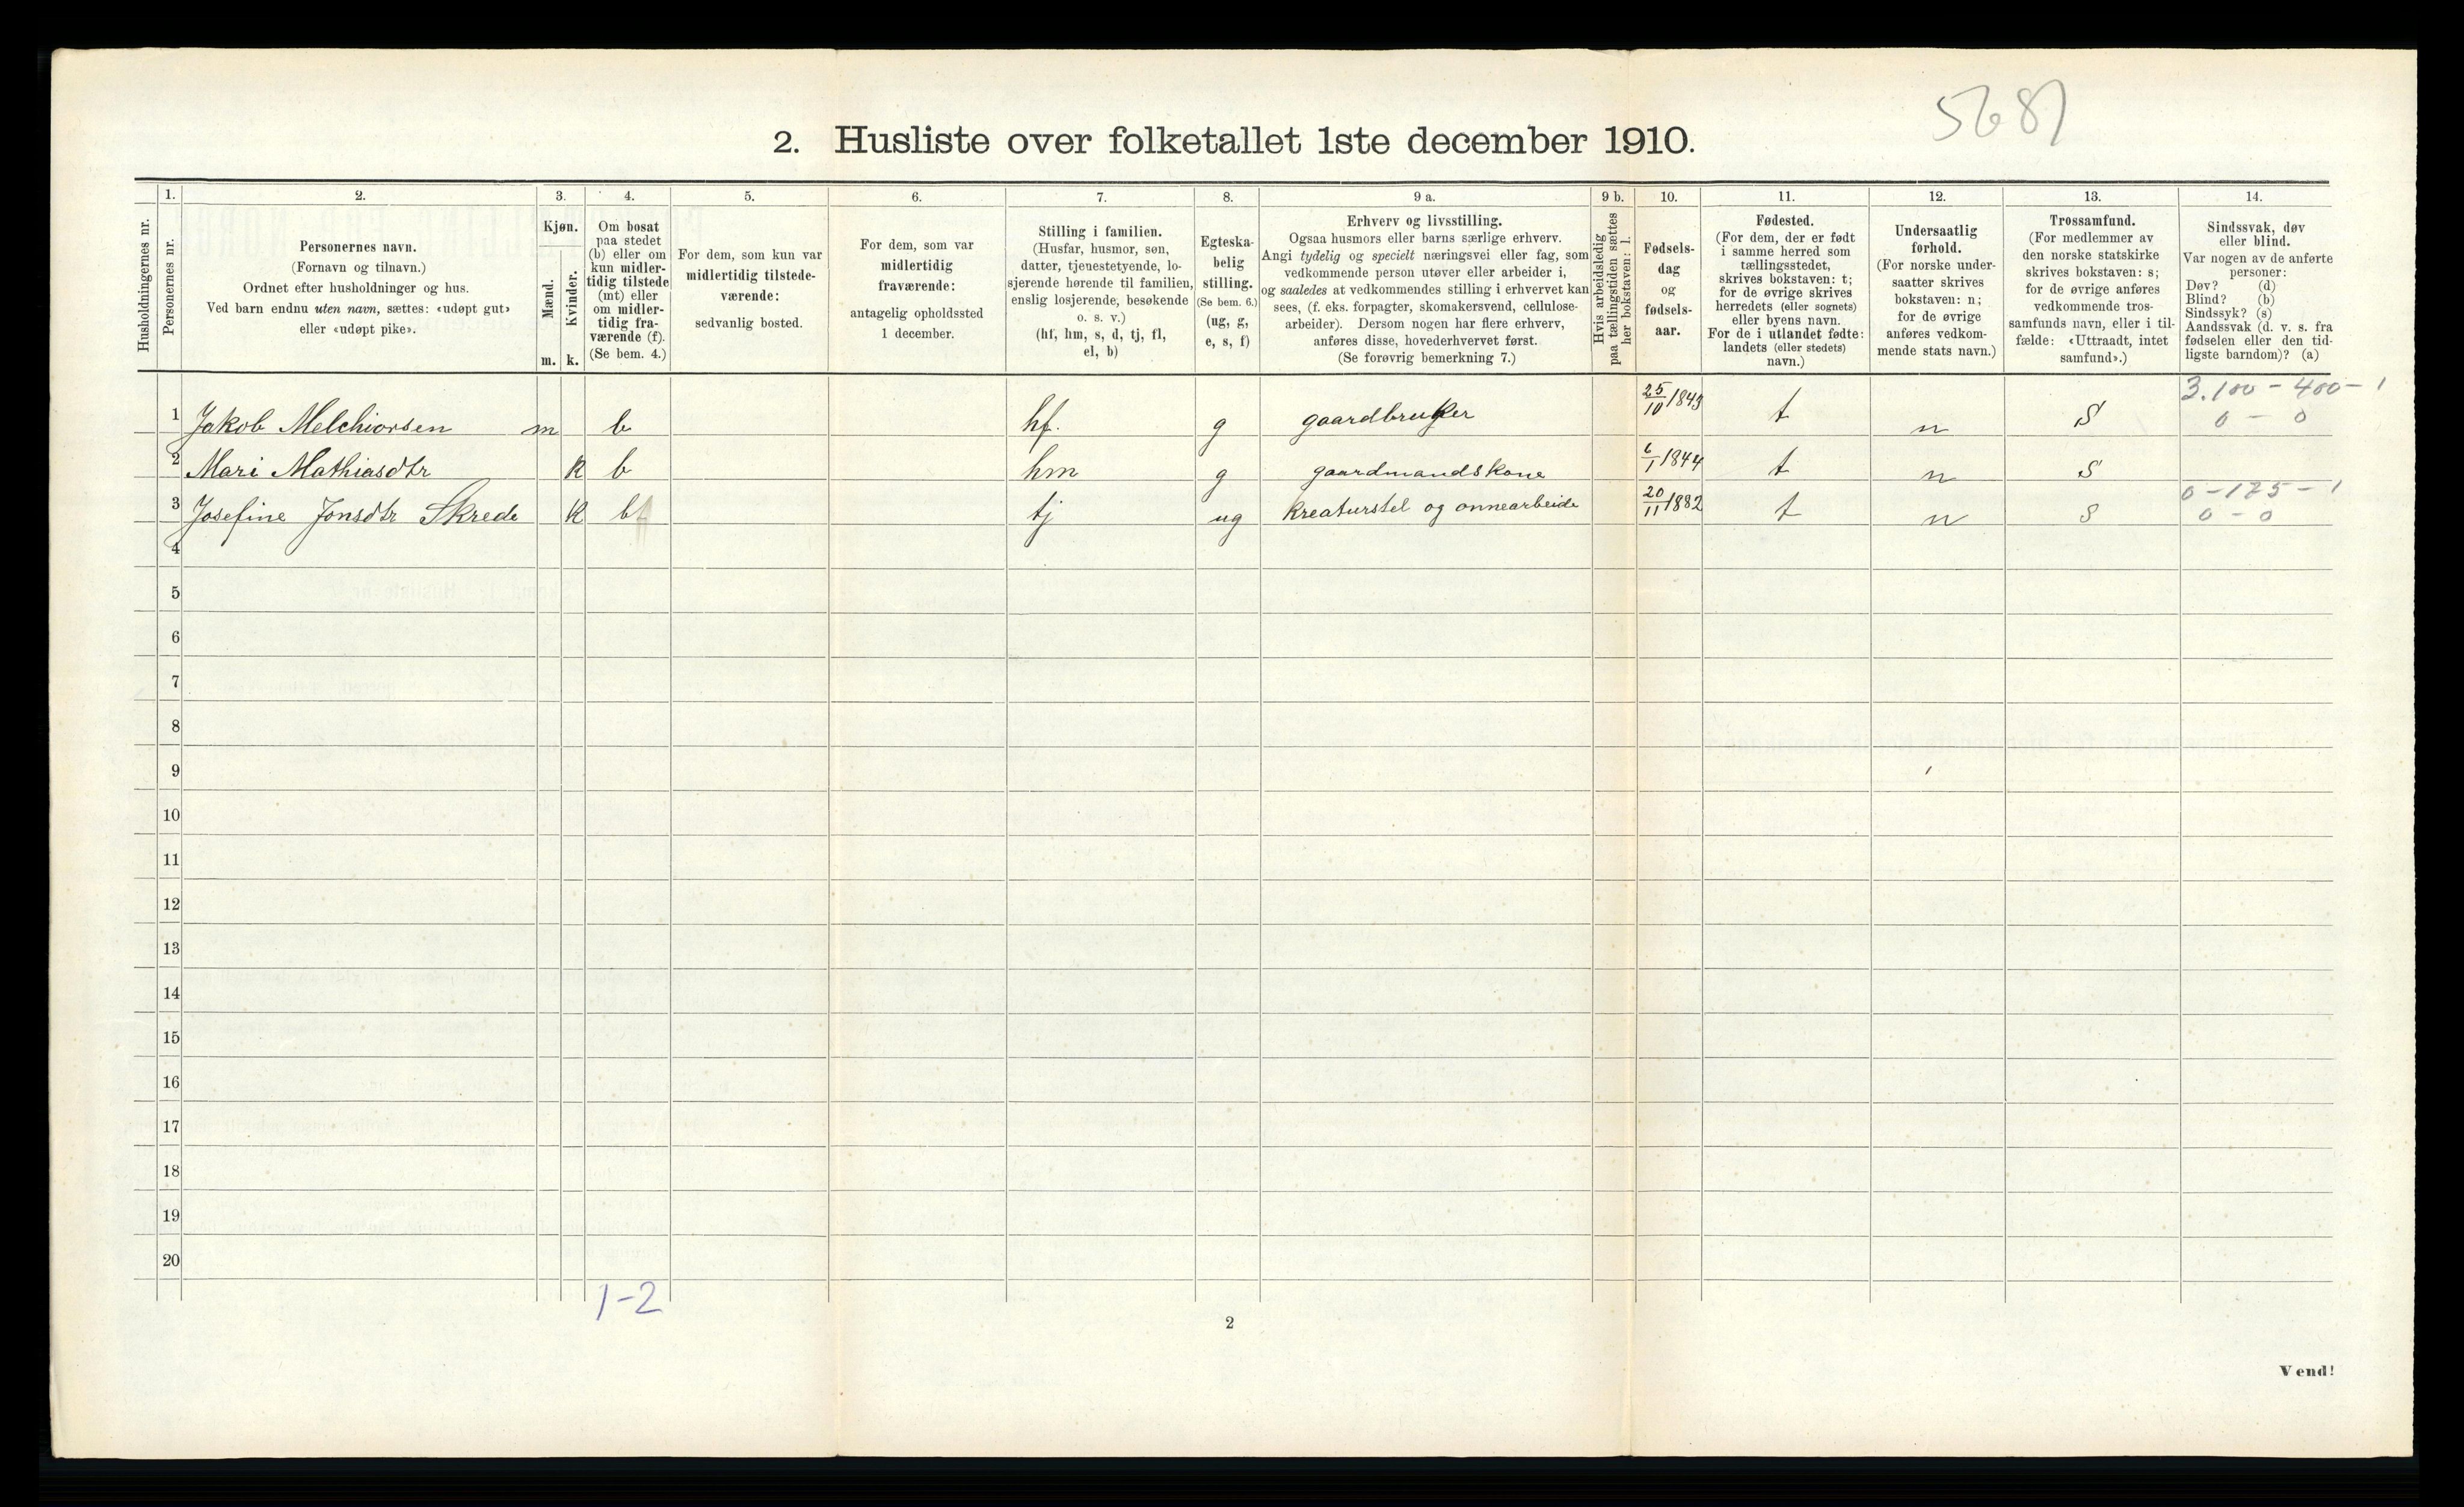 5687
2. Husliste over folketallet 1ste december 1910.
Husholdningernes nr.
1.
Personernes nr.
2.
Personernes navn.
(Fornavn og tilnavn.)
Ordnet efter husholdninger og hus.
Ved barn endnu uten navn, sættes: «udøpt gut»
eller «udøpt pike».
3.
Kjøn.
Mænd.
Kvinder.
m. k.
4.
Om bosat
paa stedet
(b) eller om
kun midler-
tidig tilstede
(mt) eller
om midler-
tidig fra-
værende (f).
(Se bem. 4.)
5.
For dem, som kun var
midlertidig tilstede-
værende:
sedvanlig bosted.
6.
For dem, som var
midlertidig
fraværende:
antagelig opholdssted
1 december.
7.
Stilling i familien.
(Husfar, husmor, søn,
datter, tjenestetyende, lo-
sjerende hørende til familien,
enslig losjerende, besøkende
o. s. v.)
(hf, hm, s, d, tj, fl,
el, b)
8.
Egteska-
belig
stilling.
(Se bem. 6.)
(ug, g,
e, s, f)
9 a.
Erhverv og livsstilling.
Ogsaa husmors eller barns særlige erhverv.
Angi tydelig og specielt næringsvei eller fag, som
vedkommende person utøver eller arbeider i,
og saaledes at vedkommendes stilling i erhvervet kan
sees, (f. eks. forpagter, skomakersvend, cellulose-
arbeider). Dersom nogen har flere erhverv,
anføres disse, hovederhvervet først.
(Se forøvrig bemerkning 7.)
9 b.
Hvis arbeidsledig
paa tællingstiden sættes
her bokstaven: l.
10.
Fødsels-
dag
og
fødsels-
aar.
11.
Fødested.
(For dem, der er født
i samme herred som
tællingsstedet,
skrives bokstaven: t;
for de øvrige skrives
herredets (eller sognets)
eller byens navn.
For de i utlandet fødte:
landets (eller stedets)
navn.)
12.
Undersaatlig
forhold.
(For norske under-
saatter skrives
bokstaven: n;
for de øvrige
anføres vedkom-
mende stats navn.)
13.
Trossamfund.
(For medlemmer av
den norske statskirke
skrives bokstaven: s;
for de øvrige anføres
vedkommende tros-
samfunds navn, eller i til-
fælde: «Uttraadt, intet
samfund».)
14.
Sindssvak, døv
eller blind.
Var nogen av de anførte
personer:
Døv? (d)
Blind? (b)
Sindssyk? (s)
Aandssvak (d. v. s. fra
fødselen eller den tid-
ligste barndom)? (a)
3.100 - 400 - 1
1 Jakob Melchiorsen m b hf. g gaardbruker 25/10 1843 t n S 0 - 0
2 Mari Mathiasdtr K b hm g gaardmandskone 6/1 1844 t n S
0 - 175 - 1
3 Josefine Jonsdtr Skrede K b tj ug Kreaturstel og onnearbeide 20/11 1882 t n S 0 - 0
4
5
6
7
8
9
10
11
12
13
14
15
16
17
18
19
20
1-2
2
Vend!